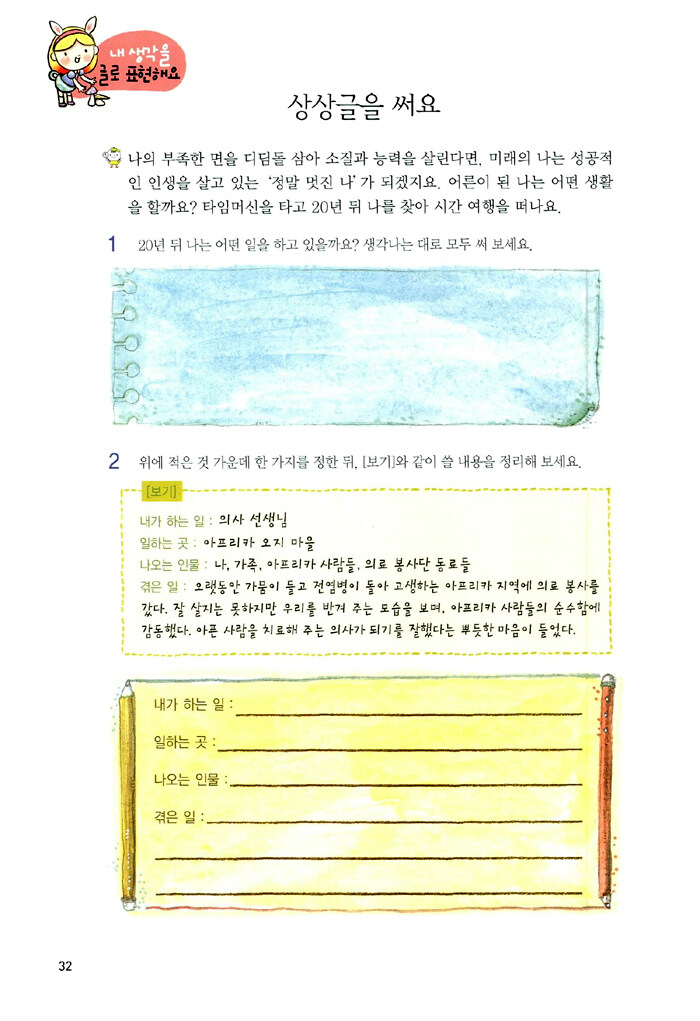 내 생각을
글로 표현해요
상상글을 써요
나의 부족한 면을 디딤돌 삼아 소질과 능력을 살린다면, 미래의 나는 성공적
인 인생을 살고 있는 ‘정말 멋진 나’가 되겠지요. 어른이 된 나는 어떤 생활
을 할까요? 타임머신을 타고 20년 뒤 나를 찾아 시간 여행을 떠나요.
1 20년 뒤 나는 어떤 일을 하고 있을까요? 생각나는 대로 모두 써 보세요.
2 위에 적은 것 가운데 한 가지를 정한 뒤, [보기]와 같이 쓸 내용을 정리해 보세요.
[보기]
내가 하는 일 : 의사 선생님
일하는 곳 : 아프리카 오지 마을
나오는 인물 : 나, 가족, 아프리카 사람들, 의료 봉사단 동료들
겪은 일 : 오랫동안 가뭄이 들고 전염병이 돌아 고생하는 아프리카 지역에 의료 봉사를
갔다. 잘 살지는 못하지만 우리를 반겨 주는 모습을 보며, 아프리카 사람들의 순수함에
감동했다. 아픈 사람을 치료해 주는 의사가 되기를 잘했다는 뿌듯한 마음이 들었다.
내가 하는 일 :
일하는 곳 :
나오는 인물 :
겪은 일 :
32